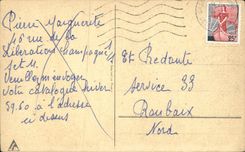 Pierre Marguerite
45 rue de la
Libération Champagne
S et M.
Veuillez m'envoyer
votre catalogue hiver
59.60 à l'adresse
ci dessus
Et Redoute
Service 33
Roubaix
Nord